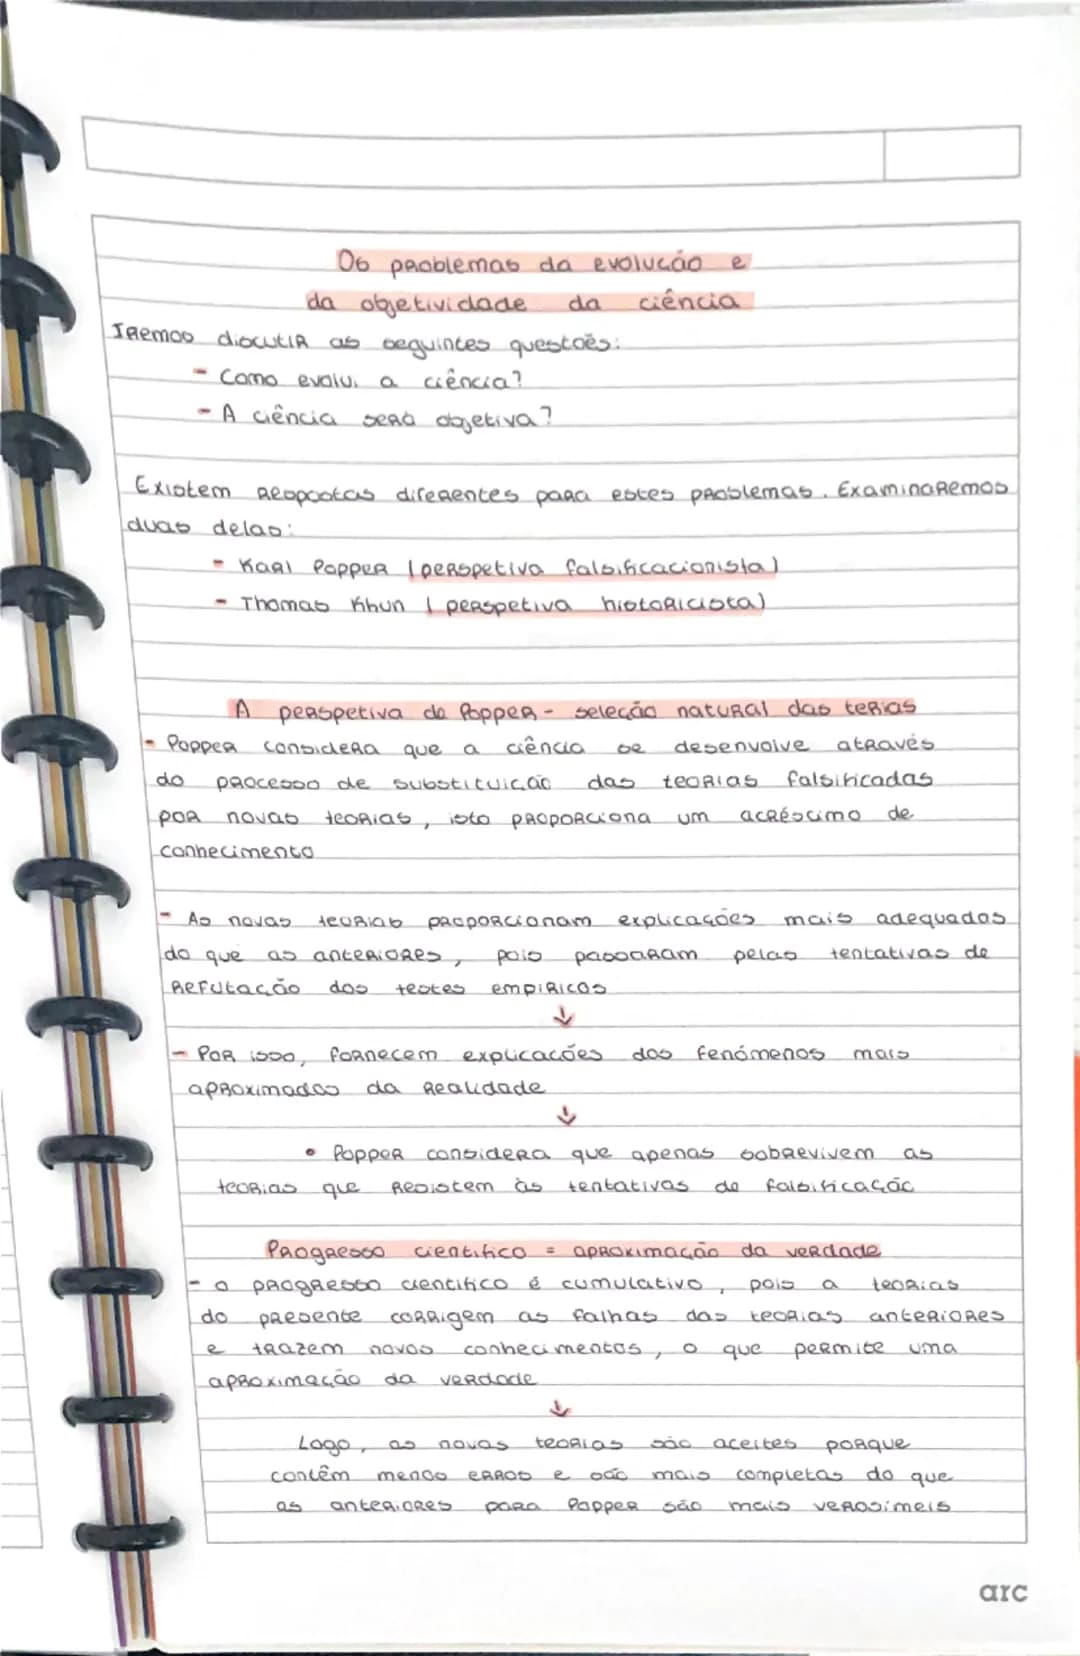 Os problemas da evolução e
da objetividade da ciência
Iremos discutir as seguintes questoẽs:
- Como evolui a ciência?
- A ciência será objetiva?
Existem respostas diferentes para estes problemas. Examinaremos
duas delas:
- Karl Popper (perspetiva falsificacionista)
- Thomas Khun (perspetiva historicista)
A perspetiva de Popper - seleção natural das terias
- Popper considera que a ciência se desenvolve através
do processo de substituição das teorias falsificadas
por novas teorias, isto proporciona um acréscimo de
conhecimento
- As novas teorias proporcionam explicações mais adequados
do que as anteriores, pois passaram pelas tentativas de
refutação dos testes empiricos
↓
- Por isso, fornecem explicações dos fenómenos mais
aproximados da realidade
↓
• Popper considera que apenas sobrevivem as
teorias que resistem às tentativas de falsificação
Progresso cientifico = aproximação da verdade
- o progresso cientifico é cumulativo, pois a teorias
do presente corrigem as falhas das teorias anteriores
e trazem novos conhecimentos, o que permite uma
aproximação da verdade
↓
Logo, as novas teorias são aceites porque
contêm menos erros e são mais completas do que
as anteriores para Popper são mais verosímeis
arc